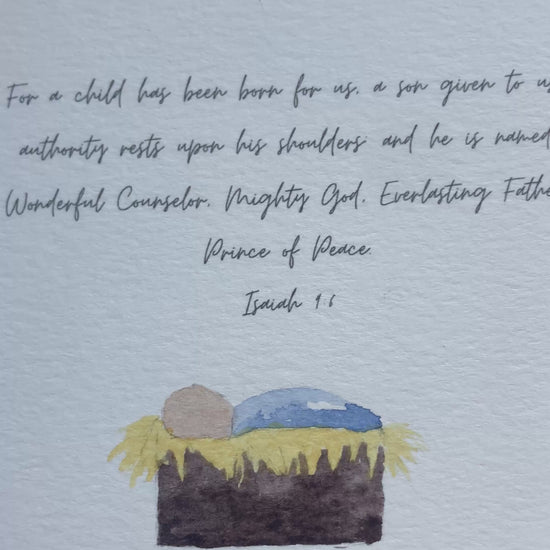 For a child has been born for us, a son given to us
authority rests upon his shoulders and he is named
Wonderful Counselor, Mighty God, Everlasting
Prince of Peace.
Isaiah 9:6